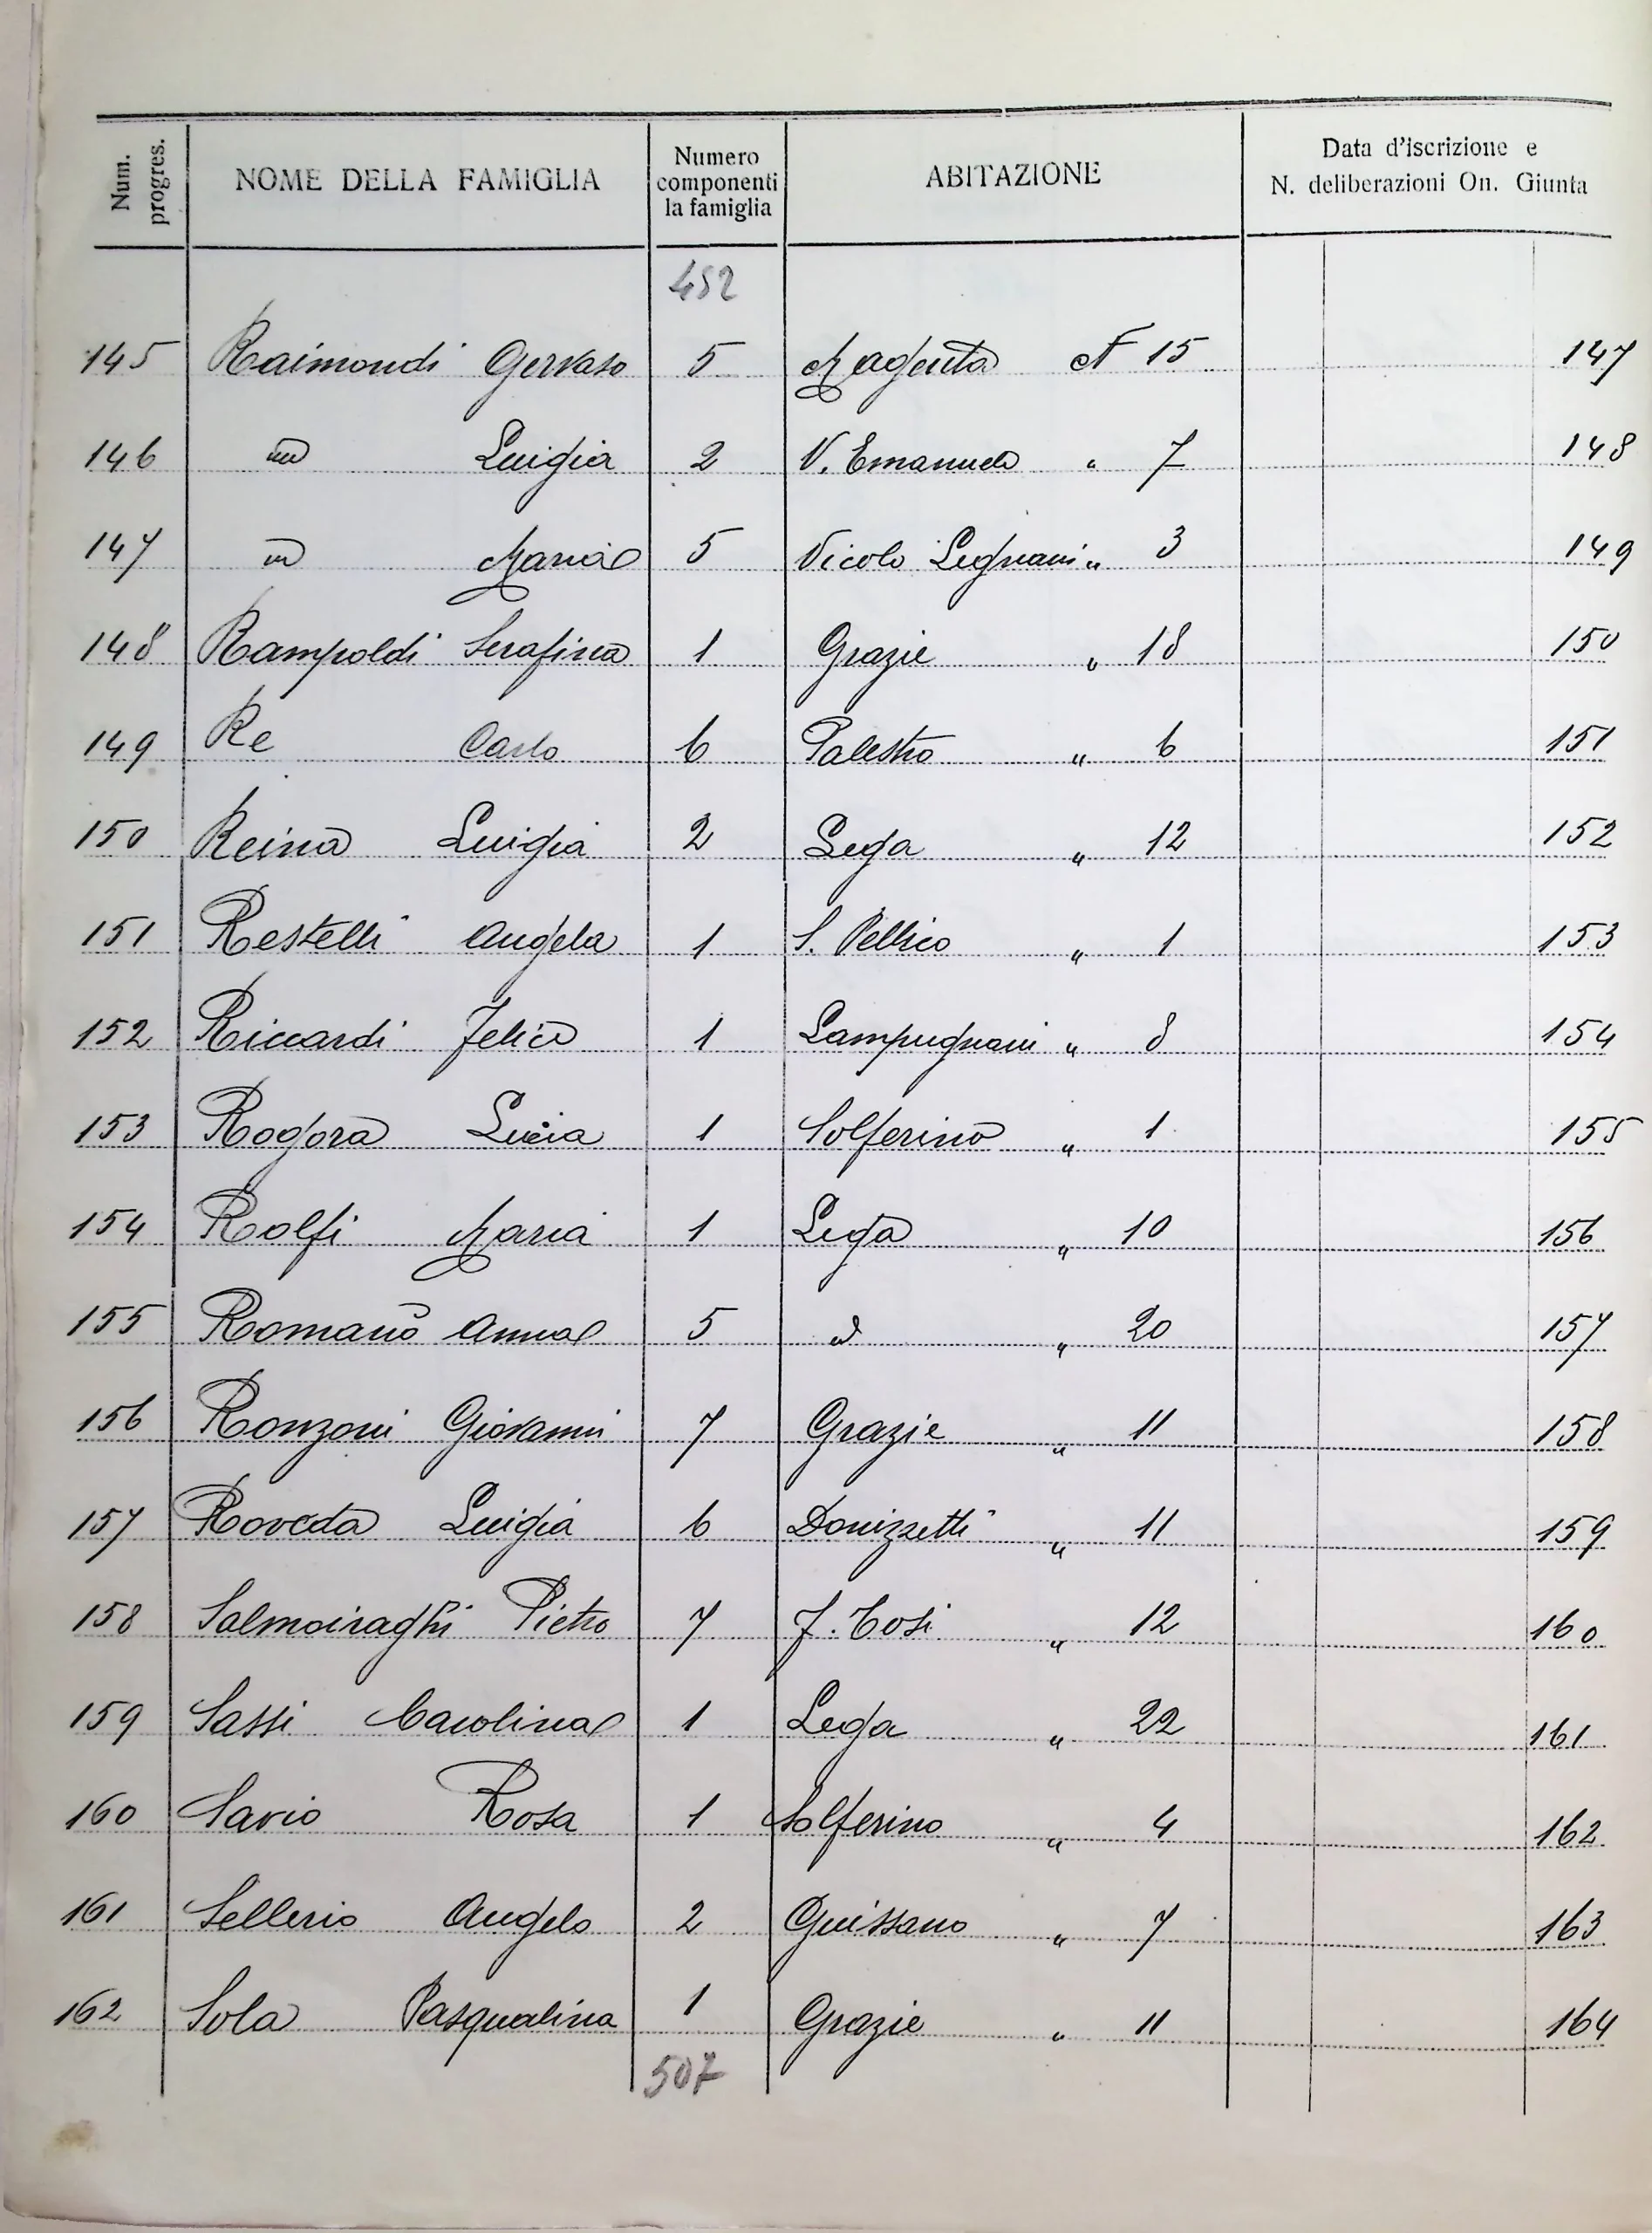 Num. progres.
NOME DELLA FAMIGLIA
Numero componenti la famiglia
ABITAZIONE
Data d'iscrizione e N. deliberazioni On. Giunta
452
145 Raimondi Gervaso 5 Magenta N 15 147
146 id Luigia 2 V. Emanuele " 7 148
147 id Maria 5 Vicolo Legnani " 3 149
148 Rampoldi Serafina 1 Grazie " 18 150
149 Re Carlo 6 Palestro " 6 151
150 Reina Luigia 2 Lega " 12 152
151 Restelli Angela 1 S. Pellico " 1 153
152 Riccardi Felice 1 Lampugnani " 8 154
153 Rogora Lucia 1 Solferino " 1 155
154 Rolfi Maria 1 Lega " 10 156
155 Romanò Anna 5 " 20 157
156 Ronzoni Giovanni 7 Grazie " 11 158
157 Roveda Luigia 6 Donizzetti " 11 159
158 Salmoiraghi Pietro 7 F. Tosi " 12 160
159 Sassi Carolina 1 Lega " 22 161
160 Savio Rosa 1 Solferino " 4 162
161 Sellerio Angelo 2 Guissano " 7 163
162 Sola Pasqualina 1 Grazie " 11 164
507